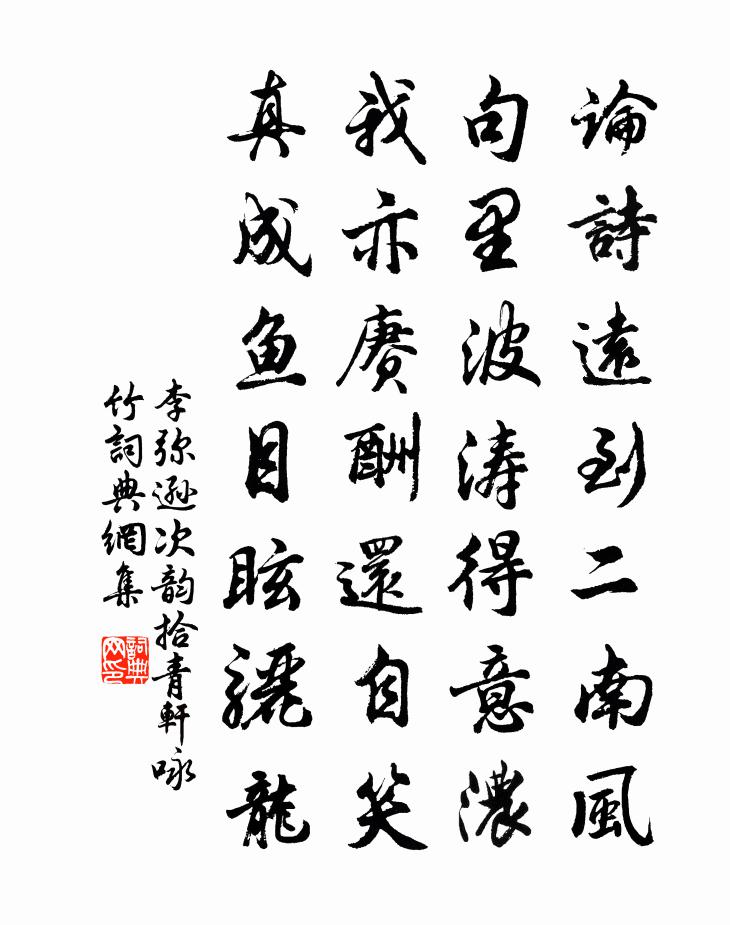 論詩遠到二南風
句里波涛得意濃
我亦赓酬還自笑
真成鱼目眩驪龍
李弥遜次韵拾青軒咏
竹詞典網集
詞典网印